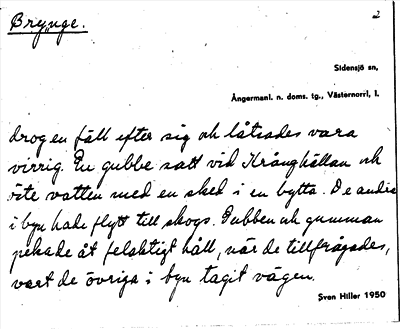 Brynge.
2
Sidensjö sn,
Ångermanl. n. doms. tg., Västernorrl, l.
drog en fäll efter sig och låtsades vara
virrig. En gubbe satt vid Krånghällan och
öste vatten med en sked i en bytta. De andra
i byn hade flytt till skogs. Gubben och gumman
pekade åt felaktigt håll, när de tillfrågades,
vart de övriga i byn tagit vägen.
Sven Hiller 1950